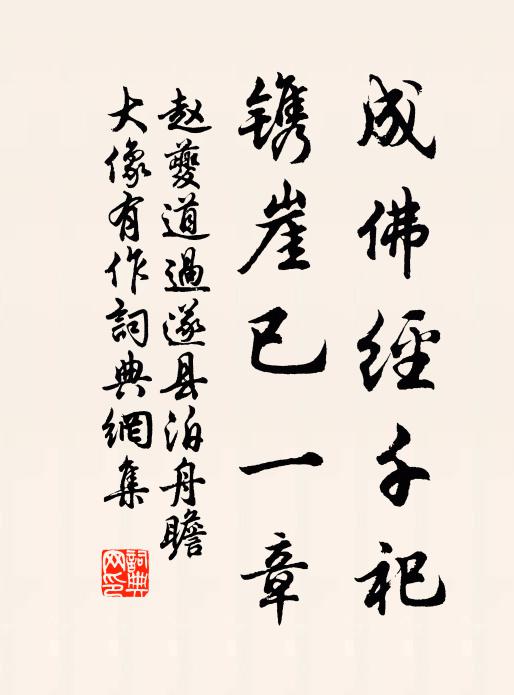 成佛經千祀
镌崖已一章
赵夔道過遂县泊舟瞻
大像有作詞典網集
詞典
网印